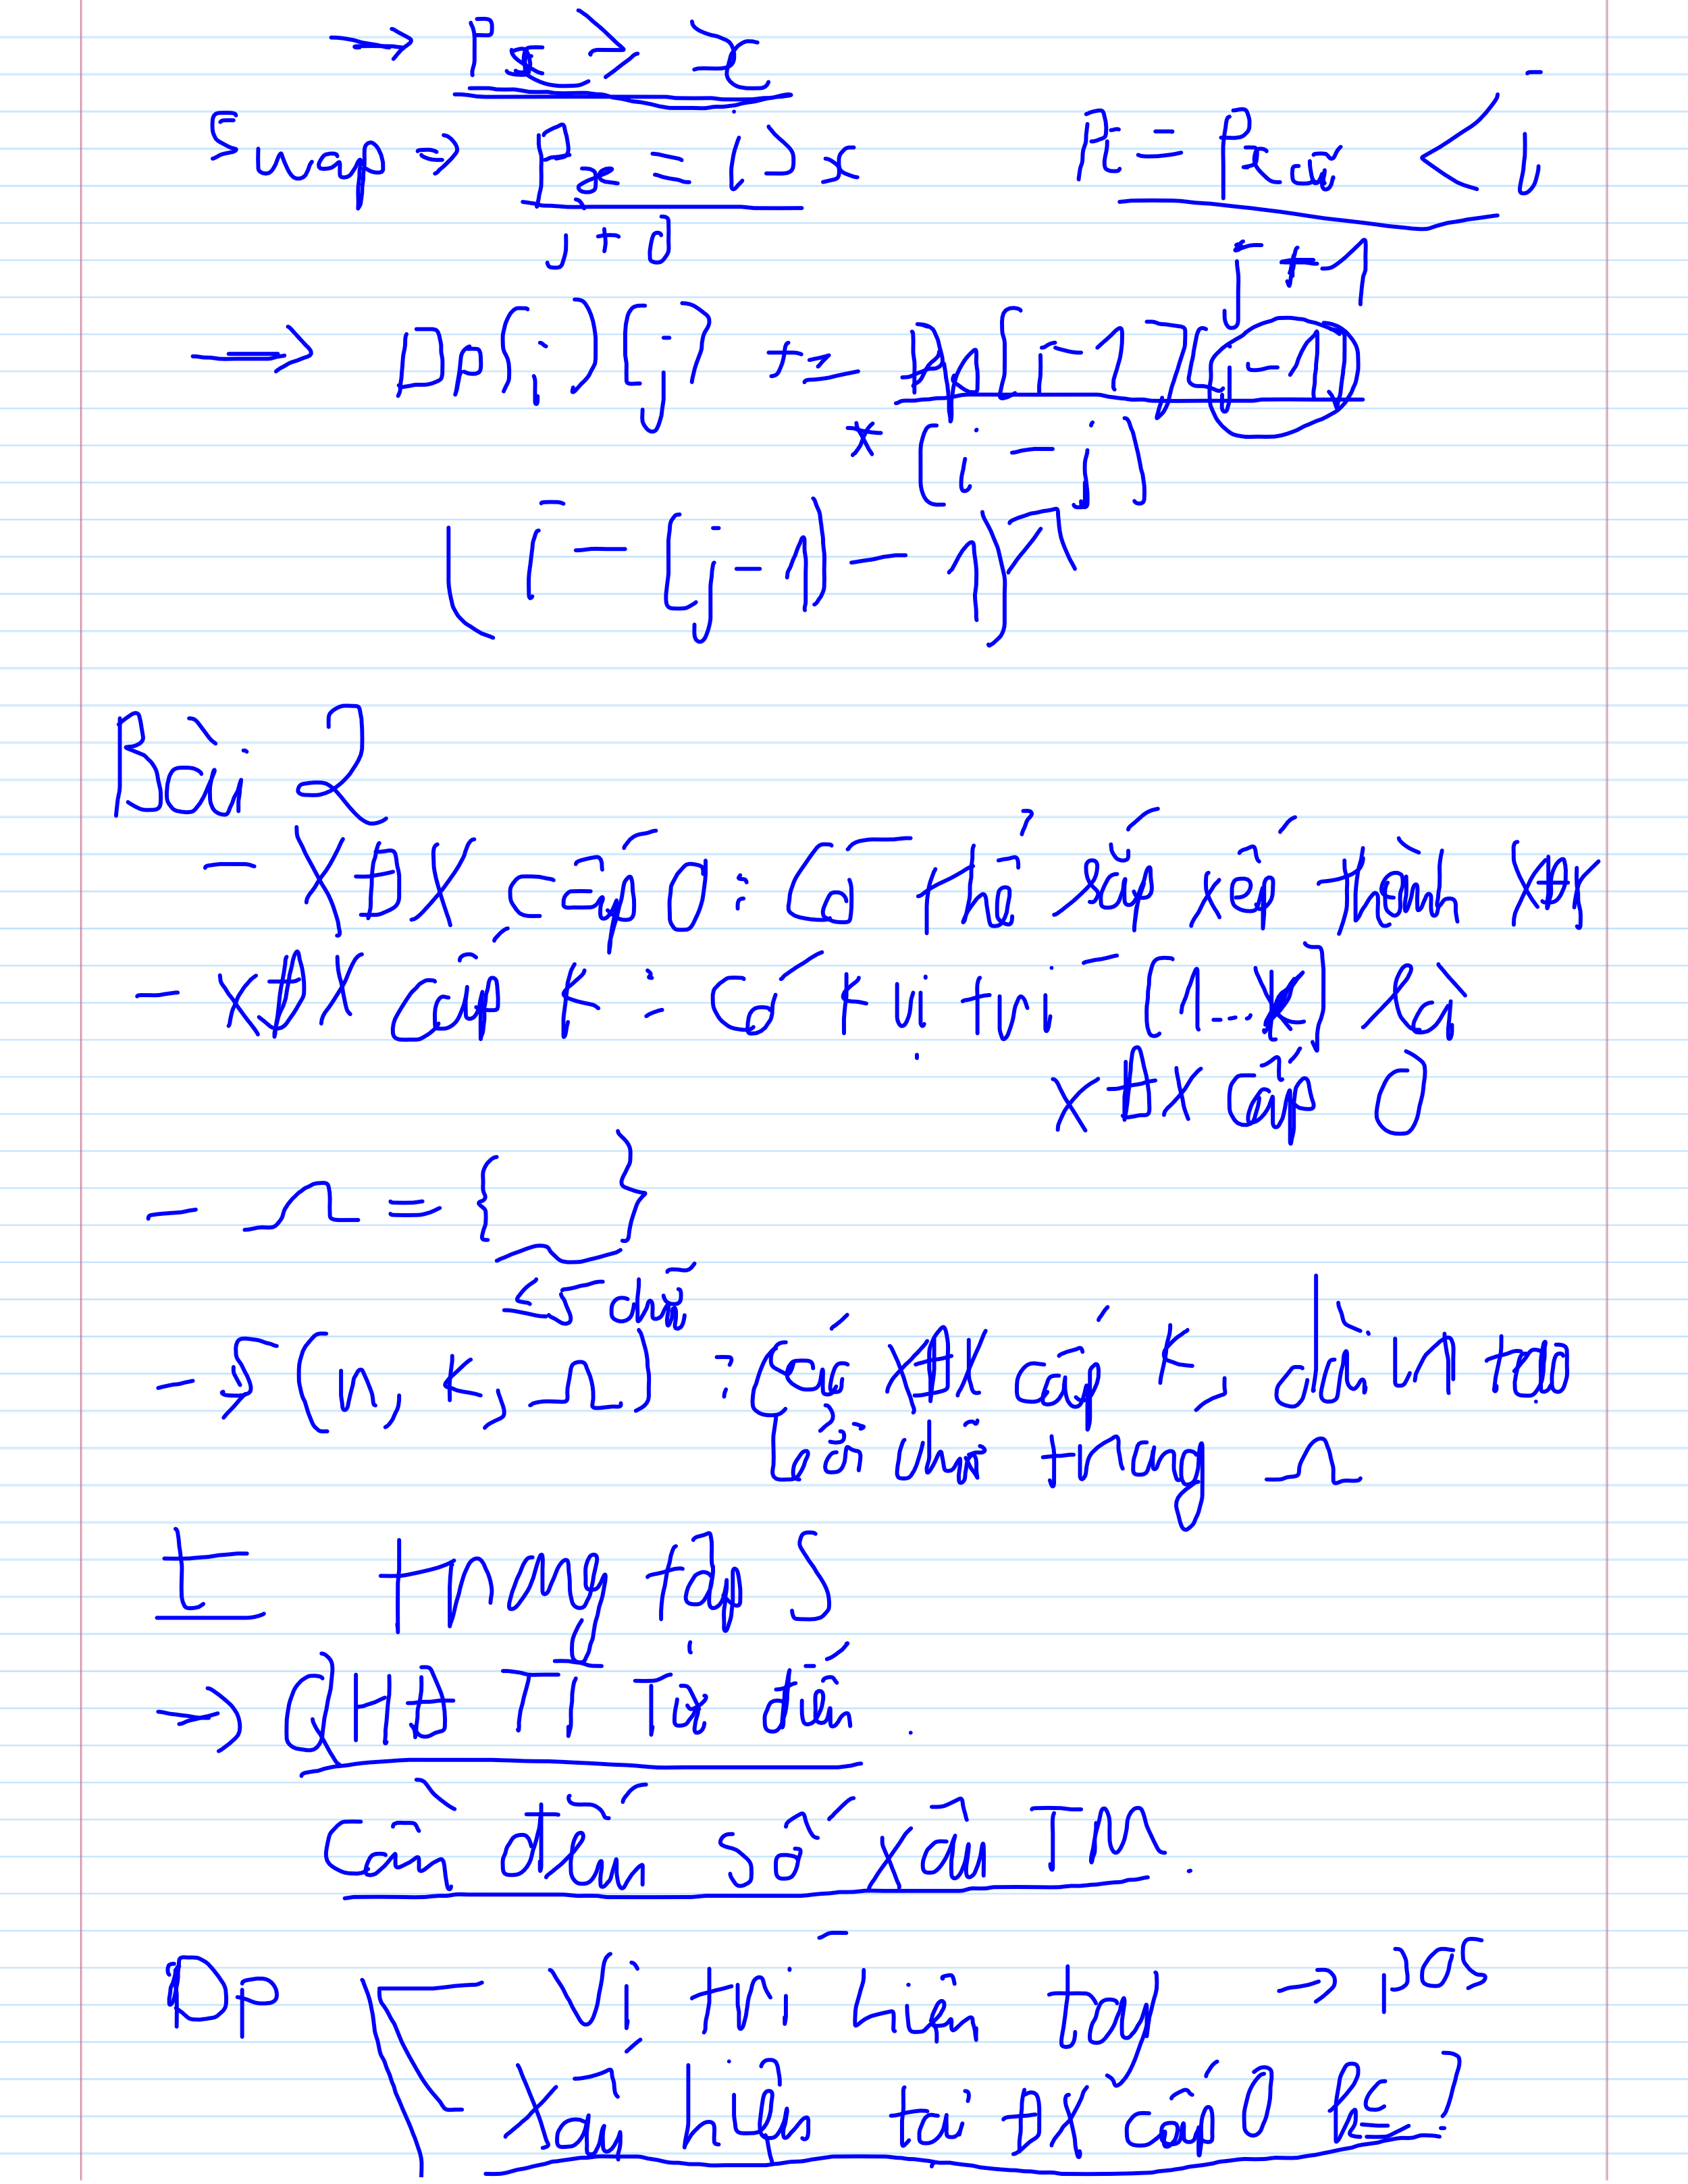 → Px > x
Swap ⇒ Px = i → x
Pi = Pxcũ < i
j + 0
j + 1
⇒ Dp[i][j] += Dp[i-1][j-1]
* (i - j)
(i - (j - 1) - 1)
Bài 2
- XĐX cấp 0 : Có thể sắp xếp thành XĐX
- XĐX cấp K : có K vị trí [1...K] là
XĐX cấp 0
- Ω = { }
≤5 chữ
- S (n, K, Ω) : Các XĐX cấp K, dài n tạo
bởi chữ trong Ω
t trong tập S
→ QHĐ TT Từ điển.
Cần đếm số xâu TM.
Dp Vị trí hiện tại → pos
Xâu hiện tại ĐX cấp 0 ko?